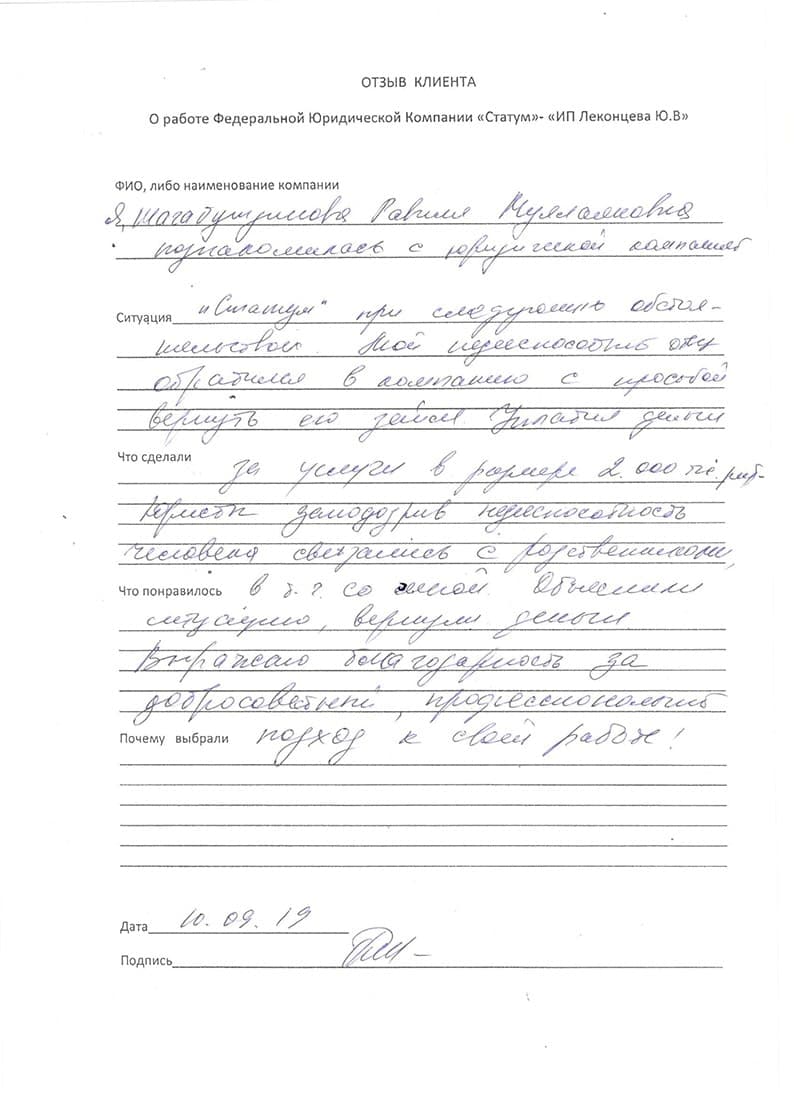 ОТЗЫВ КЛИЕНТА
О работе Федеральной Юридической Компании «Статум»- «ИП Леконцева Ю.В»
ФИО, либо наименование компании
Я, Равиля
познакомилась с юридической компанией
Ситуация "Статум" при следующих обстоя-
тельствах. Мой недееспособный
обратился в компанию с просьбой
вернуть его займ. Уплатил деньги
Что сделали за услуги в размере 2.000 руб.
Юристы заподозрив недееспособность
человека связались с родственниками,
Что понравилось в т.ч. со мной. Объяснили
ситуацию, вернули деньги
Выражаю благодарность за
добросовестный, профессиональный
Почему выбрали подход к своей работе!
Дата 10.09.19
Подпись